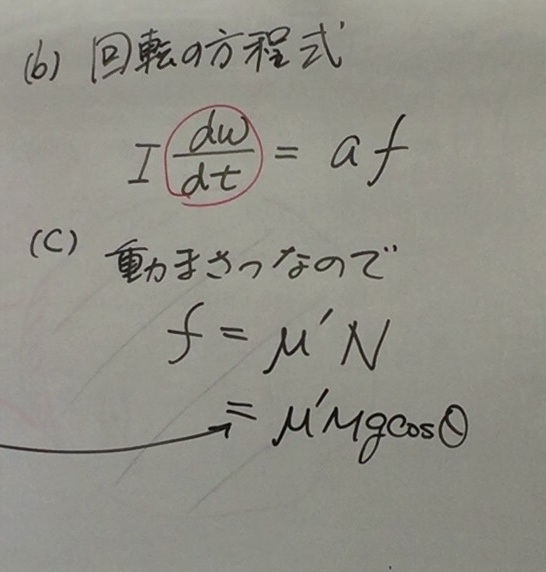 (b) 回転の方程式
I dω/dt = af
(c) 動まさつなので
f = μ'N
= μ'Mgcosθ